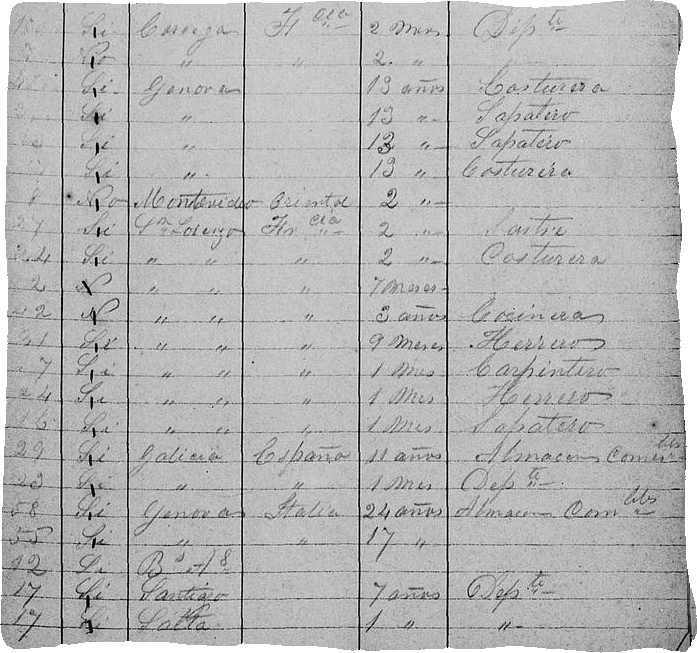 Si Corcega F cia 2 Meses Dep te
No " " 2 "
Si Genova 13 años Costurera
Si " 13 " Sapatero
Si " 13 " Sapatero
Si " 13 " Costurera
8 No Montevideo Oriental 2 "
27 Si Sn Lorenzo Fr cia 2 " Sastre
24 Si " " " 2 " Costurera
2 N " " " 7 meses
42 N " " " 3 años Cocinera
Si " " " 9 Meses Herrero
Si " " " 1 Mes Carpintero
Si " " " 1 Mes Herrero
Si " " " 1 Mes Sapatero
29 Si Galicia España 11 años Almacen Comes bles
23 Si " " 1 Mes Dep te
58 Si Genova Italia 24 años Almacen Com bles
55 Si " " 17 "
12 Si Bs As
17 Si Santiago 7 años Dep te
17 Si Salta 1 " "